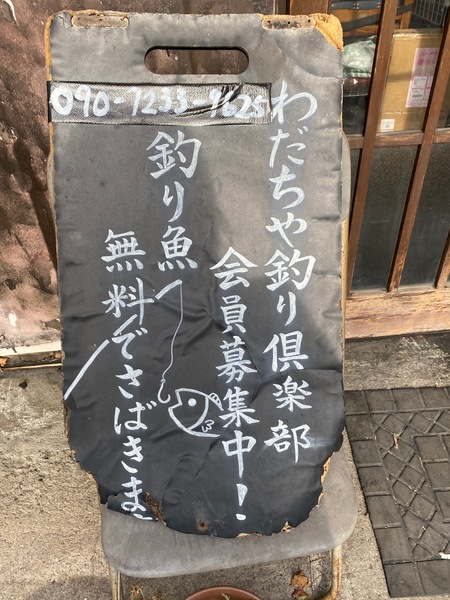 090-7233-7625
わだちや釣り倶楽部
会員募集中!
釣り魚
無料でさばきま